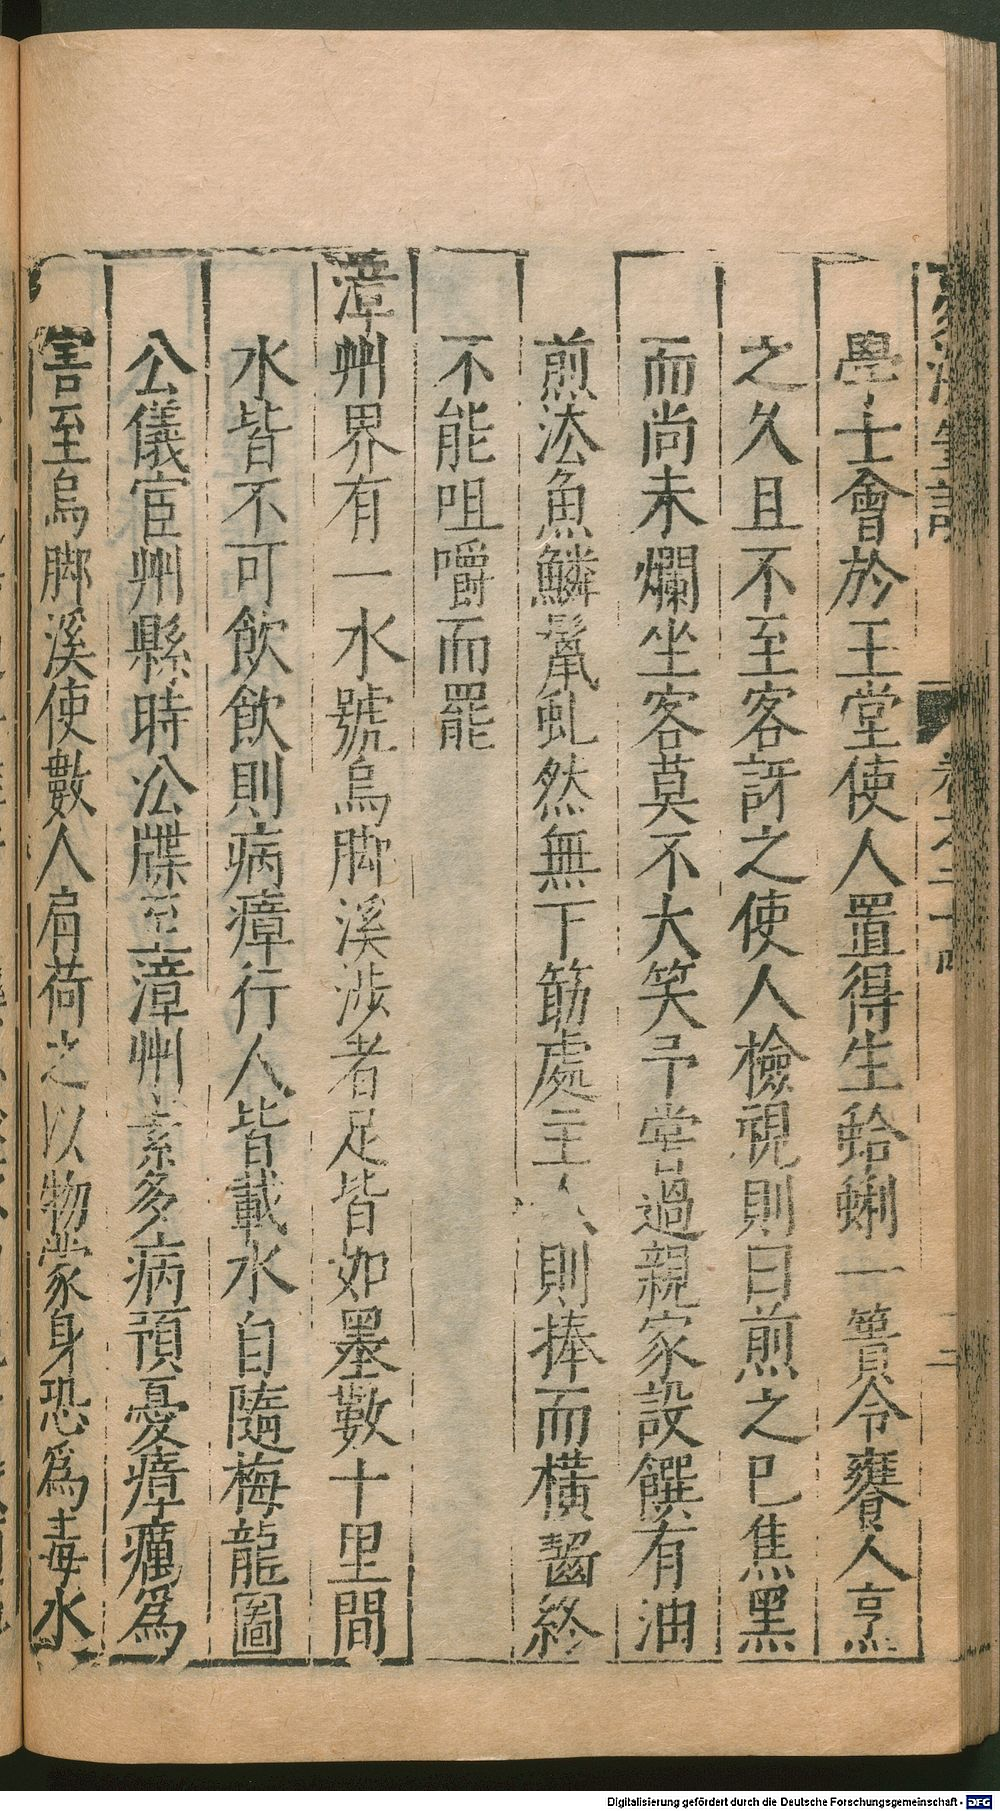 夢溪筆談 卷之二十四 二
學士會於玉堂使人置得生蛤蜊一簣令饔人烹
之久且不至客訝之使人檢視則曰煎之已焦黑
而尚未爛坐客莫不大笑予嘗過親家設饌有油
煎法魚鱗鬣虬然無下筯處主人則捧而橫齧終
不能咀嚼而罷
漳州界有一水號烏脚溪涉者足皆如墨數十里間
水皆不可飲飲則病瘴行人皆載水自隨梅龍圖
公儀宦州縣時㳂牒至漳州素多病預憂瘴癘爲
害至烏脚溪使數人肩荷之以物蒙身恐爲毒水
Digitalisierung gefördert durch die Deutsche Forschungsgemeinschaft - DFG